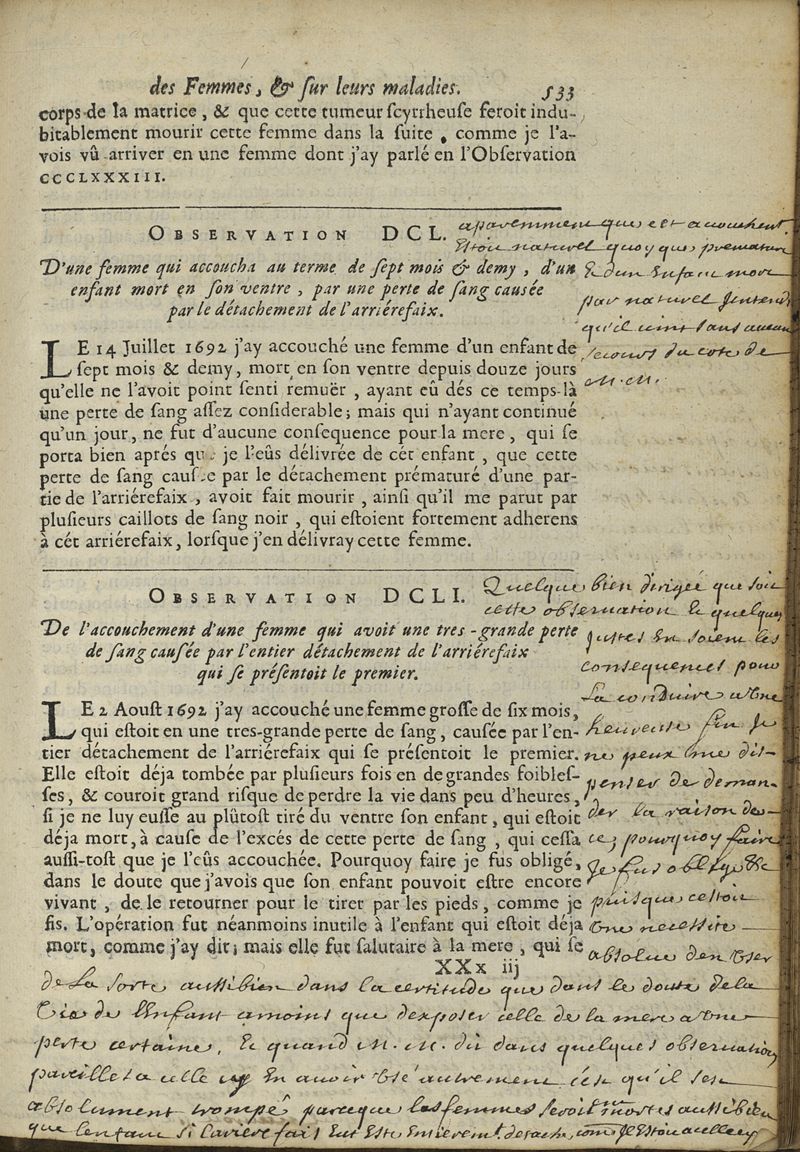 des Femmes, & sur leurs maladies. 533
corps de la matrice, & que cette tumeur scyrrheuse feroit indu-
bitablement mourir cette femme dans la suite, comme je l'a-
vois vû arriver en une femme dont j'ay parlé en l'Observation
CCCLXXXIII.
OBSERVATION DCL.
D'une femme qui accoucha au terme de sept mois & demy, d'un
enfant mort en son ventre, par une perte de sang causée
par le détachement de l'arriérefaix.
apparemment que cet accouchent.
Estoit naturel quoy que premature
& dun Enfant mort
par naturel Jentend
qu'il vint sans aucun
secours du coté de
M. M.
LE 14 Juillet 1692 j'ay accouché une femme d'un enfant de
sept mois & demy, mort en son ventre depuis douze jours
qu'elle ne l'avoit point senti remuër, ayant eû dés ce temps-là
une perte de sang assez considerable; mais qui n'ayant continué
qu'un jour, ne fut d'aucune consequence pour la mere, qui se
porta bien aprés que je l'eûs délivrée de cét enfant, que cette
perte de sang causée par le détachement prématuré d'une par-
tie de l'arriérefaix, avoit fait mourir, ainsi qu'il me parut par
plusieurs caillots de sang noir, qui estoient fortement adherens
à cét arriérefaix, lorsque j'en délivray cette femme.
OBSERVATION DCLI.
De l'accouchement d'une femme qui avoit une tres-grande perte
de sang causée par l'entier détachement de l'arriérefaix
qui se présentoit le premier.
LE 2 Aoust 1692 j'ay accouché une femme grosse de six mois,
qui estoit en une tres-grande perte de sang, causée par l'en-
tier détachement de l'arriérefaix qui se présentoit le premier.
Elle estoit déja tombée par plusieurs fois en de grandes foibles-
ses, & couroit grand risque de perdre la vie dans peu d'heures,
si je ne luy eusse au plûtost tiré du ventre son enfant, qui estoit
déja mort, à cause de l'excés de cette perte de sang, qui cessa
aussi-tost que je l'eûs accouchée. Pourquoy faire je fus obligé,
dans le doute que j'avois que son enfant pouvoit estre encore
vivant, de le retourner pour le tirer par les pieds, comme je
fis. L'opération fut néanmoins inutile à l'enfant qui estoit déja
mort, comme j'ay dit; mais elle fut salutaire à la mere, qui se
XXx iij
Quelque bien dirigée que soit
cette observation & quelques
justes En soient les
consequences pour
La conduire a Une
heureuse fin Je
ne peux me dis-
penser de deman-
der la raison de
ce, pourquoy faire
Je fus obligé &c
puisque cestoit
Une necessité
absolue den Vser
de La sorte aussi bien dans la certitude que dans le doute de la
Vie de Lenfant a moins que dexposer celle de la mere a Une
perte certaine, Et quand M. M. dit dans quelques observations
pareilles a celle cy En avoir Vsé autrement cest qu'il sest
absolument trompé parceque les femmes seroit mortes aussi bien
que lenfant si lariere fait Eut Esté Entierem.t detaché, com̃e Il Estoit a celle cy